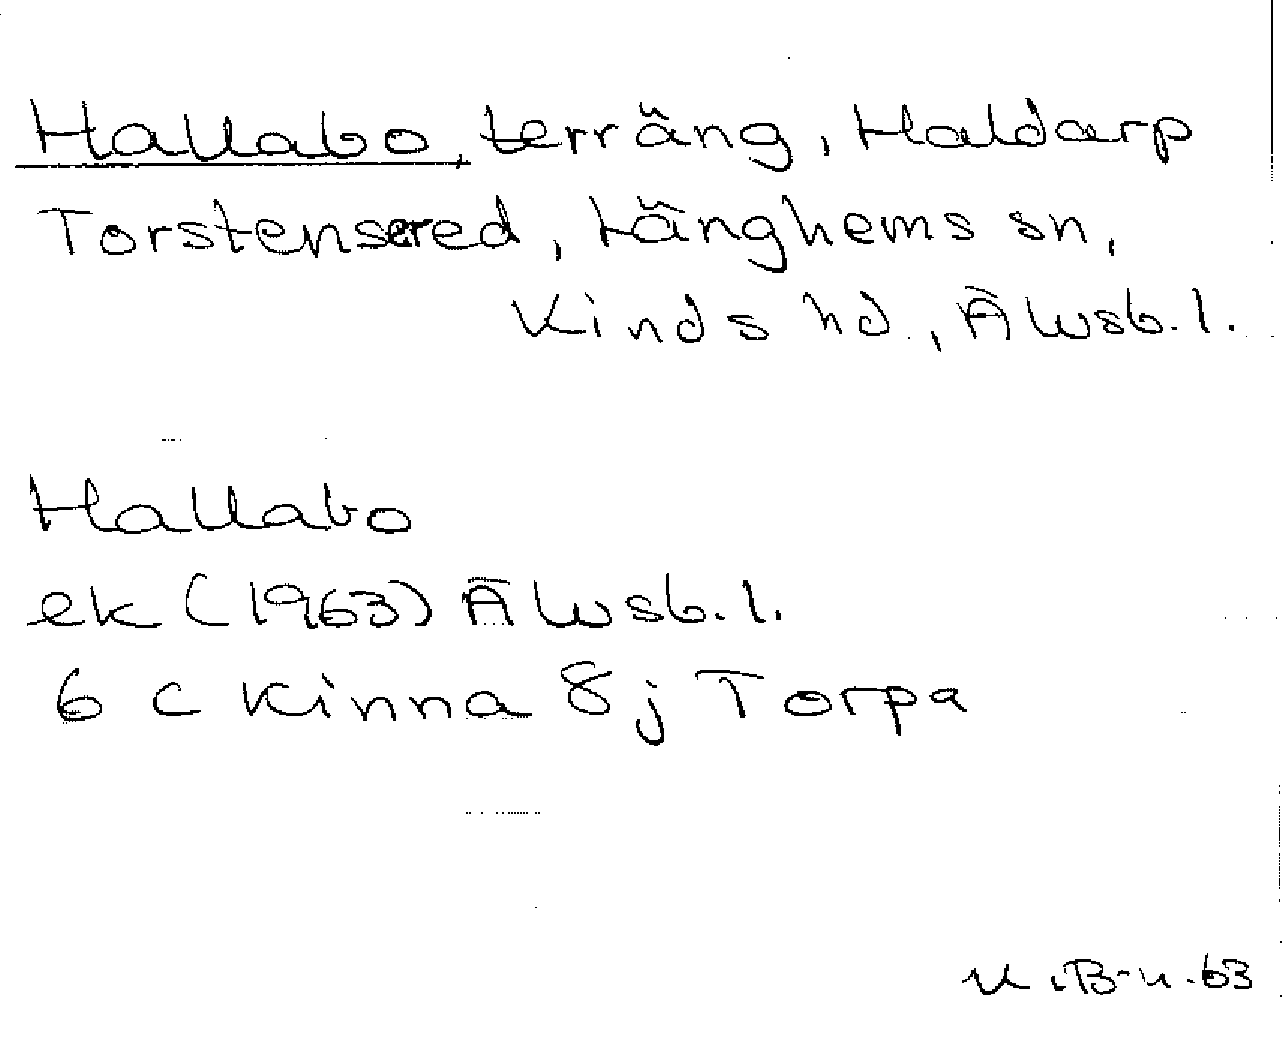 Hallabo, terräng, Haldarp
Torstensered, Länghems sn,
Kinds hd., Älvsb. l.
Hallabo
ek (1963) Älvsb. l.
6 C Kinna 8 j Torpa
63